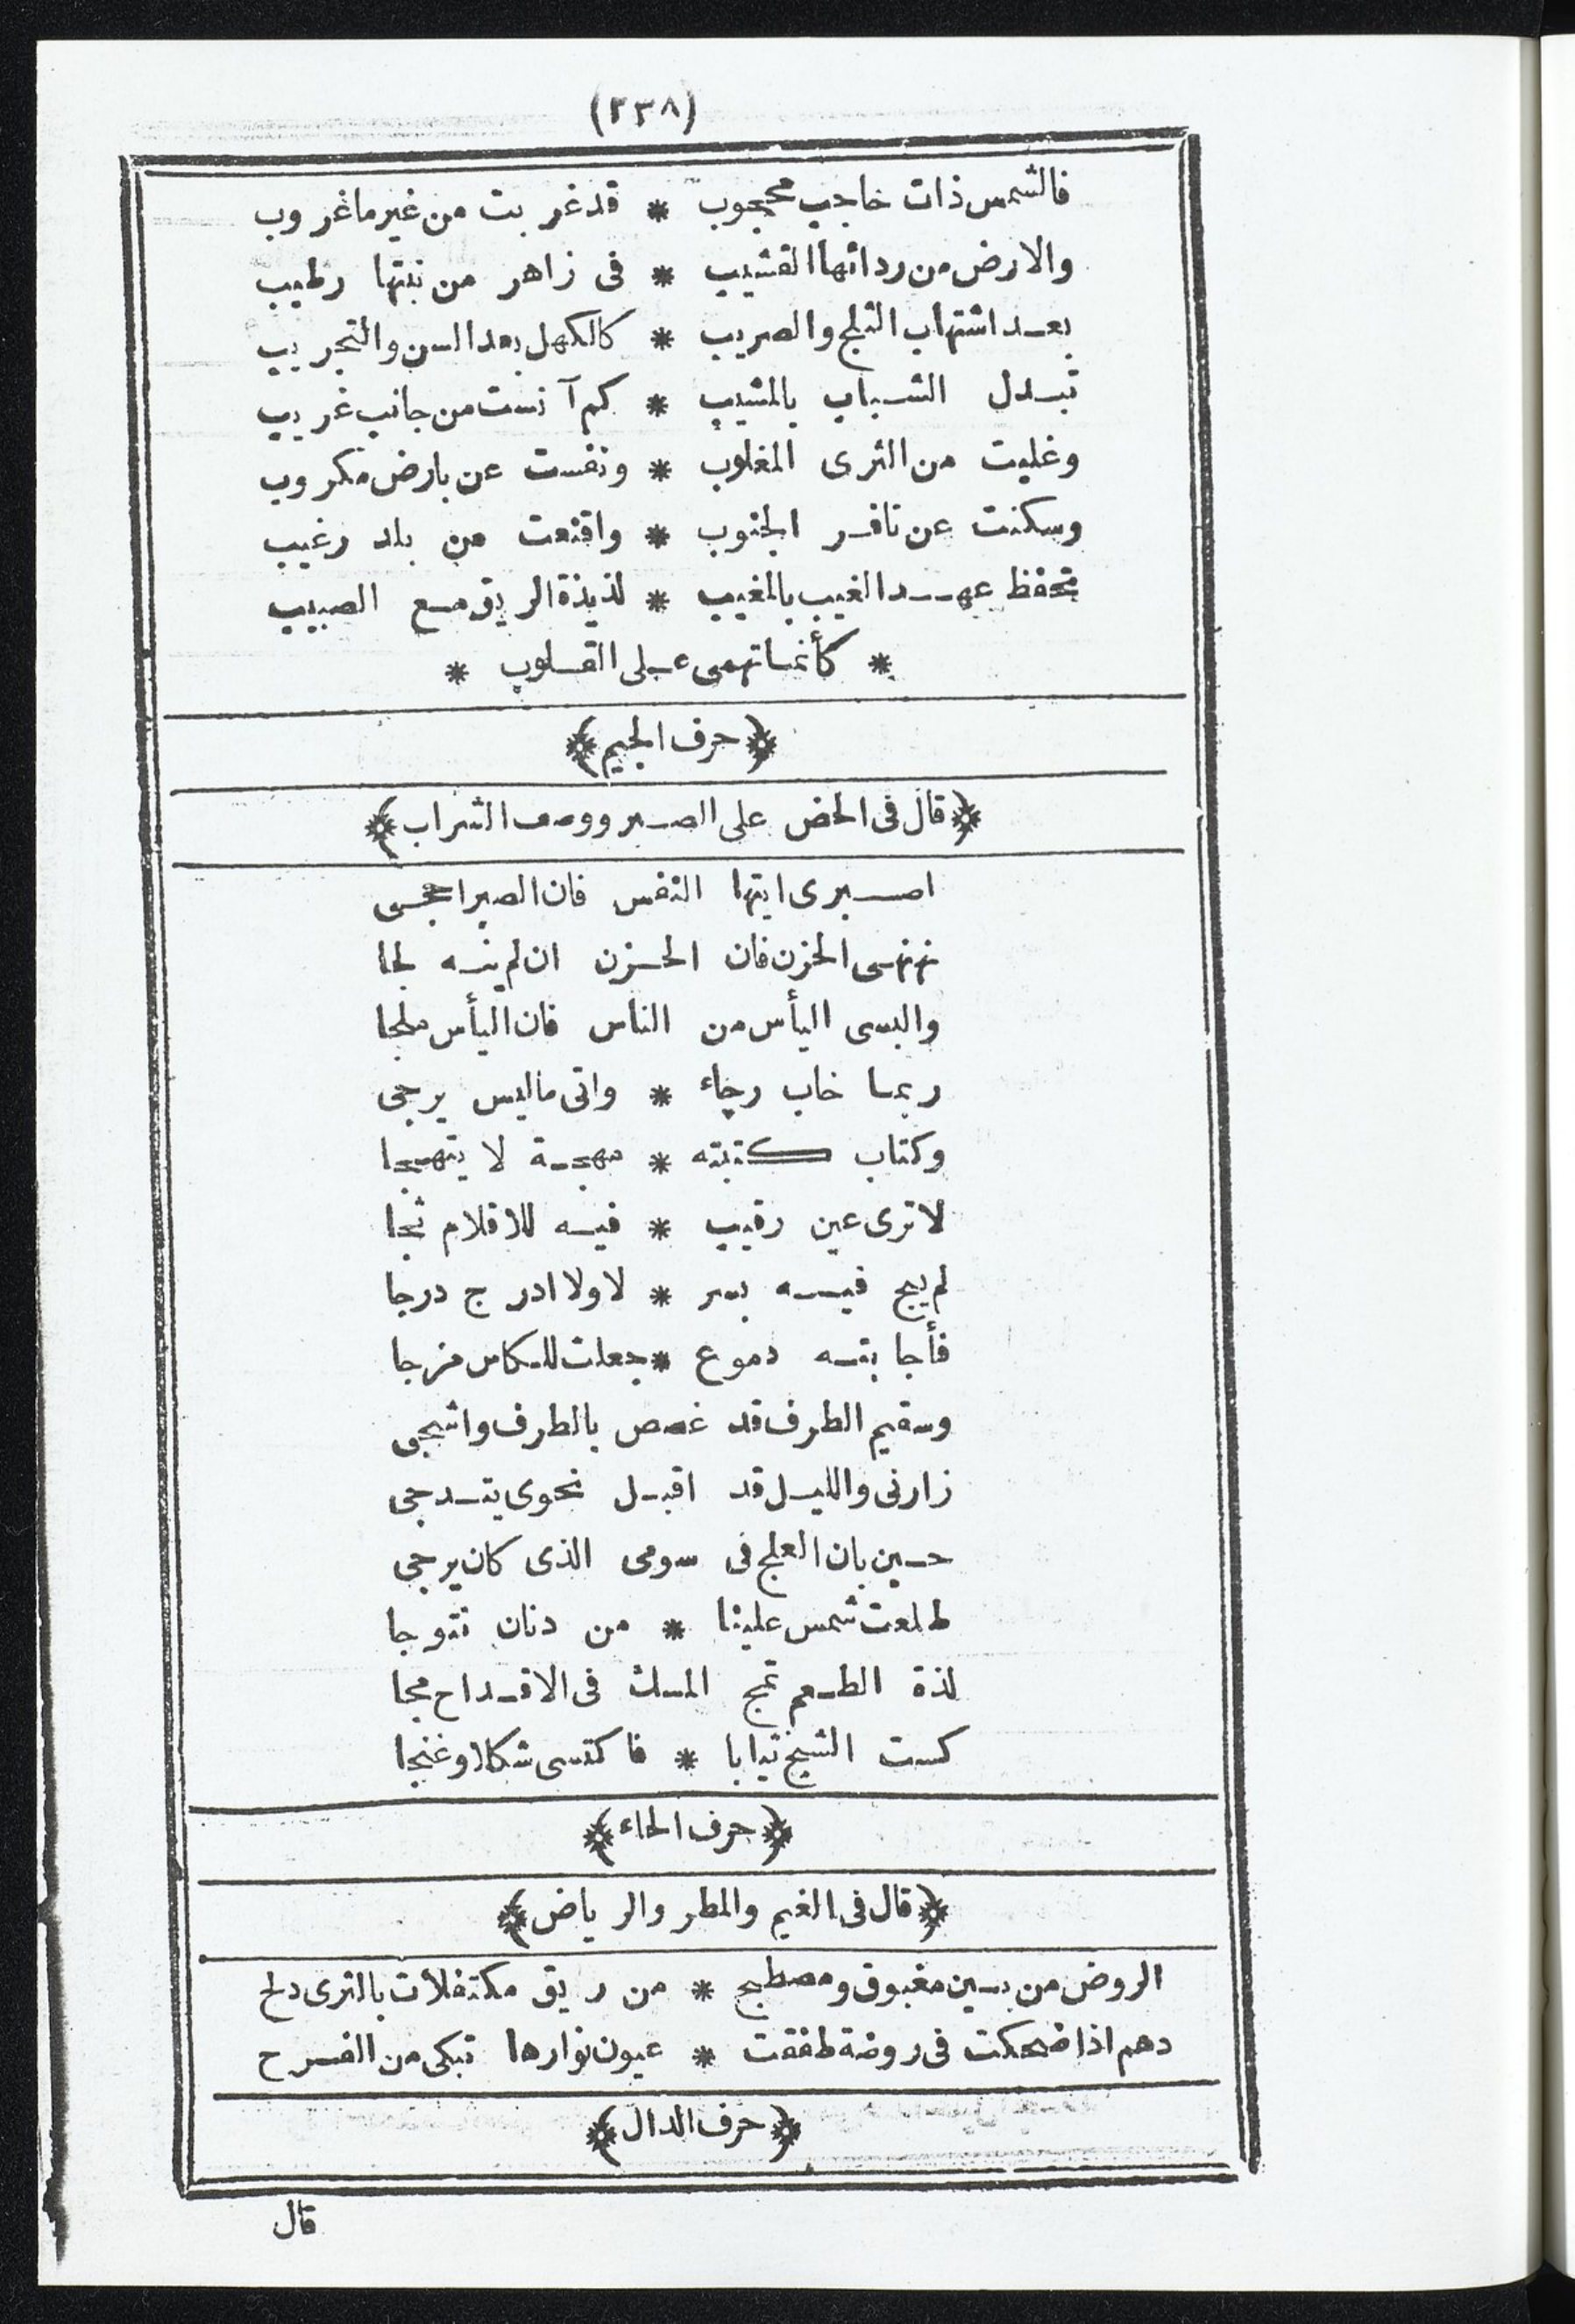 (٢٣٨)
فالشمس ذات حاجب محجوب * قد غربت من غير ما غروب
والارض من ردائها القشيب * فى زاهر من نبتها رطيب
بعد اشتهاب الثلج والصريب * كالكهل بعد السن والتجريب
تبدل الشباب بالمشيب * كم آنست من جانب غريب
وغلبت من الثرى المغلوب * ونفست عن بارض مكروب
وسكنت عن نافر الجنوب * واقنعت من بلد رغيب
تحفظ عهد الغيب بالمغيب * لذيذة الريق مع الصبيب
* كأنما تهمى على القلوب *
﴿حرف الجيم﴾
﴿قال فى الحض على الصبر ووصف الشراب﴾
اصبرى ايتها النفس فان الصبر احجى
نهنهى الحزن فان الحزن ان لم ينه لجا
والبسى اليأس من الناس فان اليأس ملجا
ربما خاب رجاء * واتى ما ليس يرجى
وكتاب كتبته * مهجة لا يتهجا
لا ترى عين رقيب * فيه للاقلام ثجا
لم يبح فيه بسر * لا ولا ادرج درجا
فأجابته دموع * جعلت للكاس مزجا
وسقيم الطرف قد غصص بالطرف واشجى
زارنى والليل قد اقبل نحوى يتدجى
حين بان العلج فى سومى الذى كان يرجى
طلعت شمس علينا * من دنان تتوجا
لذة الطعم تمج المسك فى الاقداح مجا
كست الشيخ ثيابا * فاكتسى شكلا وغنجا
﴿حرف الحاء﴾
﴿قال فى الغيم والمطر والرياض﴾
الروض من بين مغبوق ومصطبح * من ريق مكتفلات بالثرى دلح
دهم اذا ضحكت فى روضة طفقت * عيون نوارها تبكى من الفرح
﴿حرف الدال﴾
قال